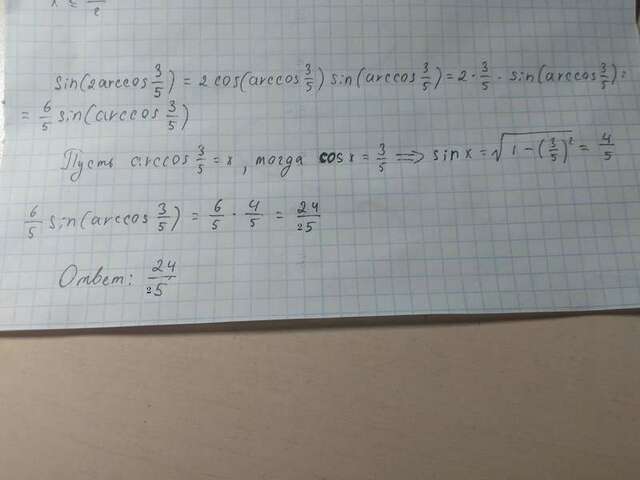 sin(2arccos 3/5) = 2 cos(arccos 3/5) sin(arccos 3/5) = 2 · 3/5 · sin(arccos 3/5) =
= 6/5 sin(arccos 3/5)
Пусть arccos 3/5 = x, тогда cos x = 3/5 ⟹ sin x = √(1 − (3/5)²) = 4/5
6/5 sin(arccos 3/5) = 6/5 · 4/5 = 24/25
Ответ: 24/25